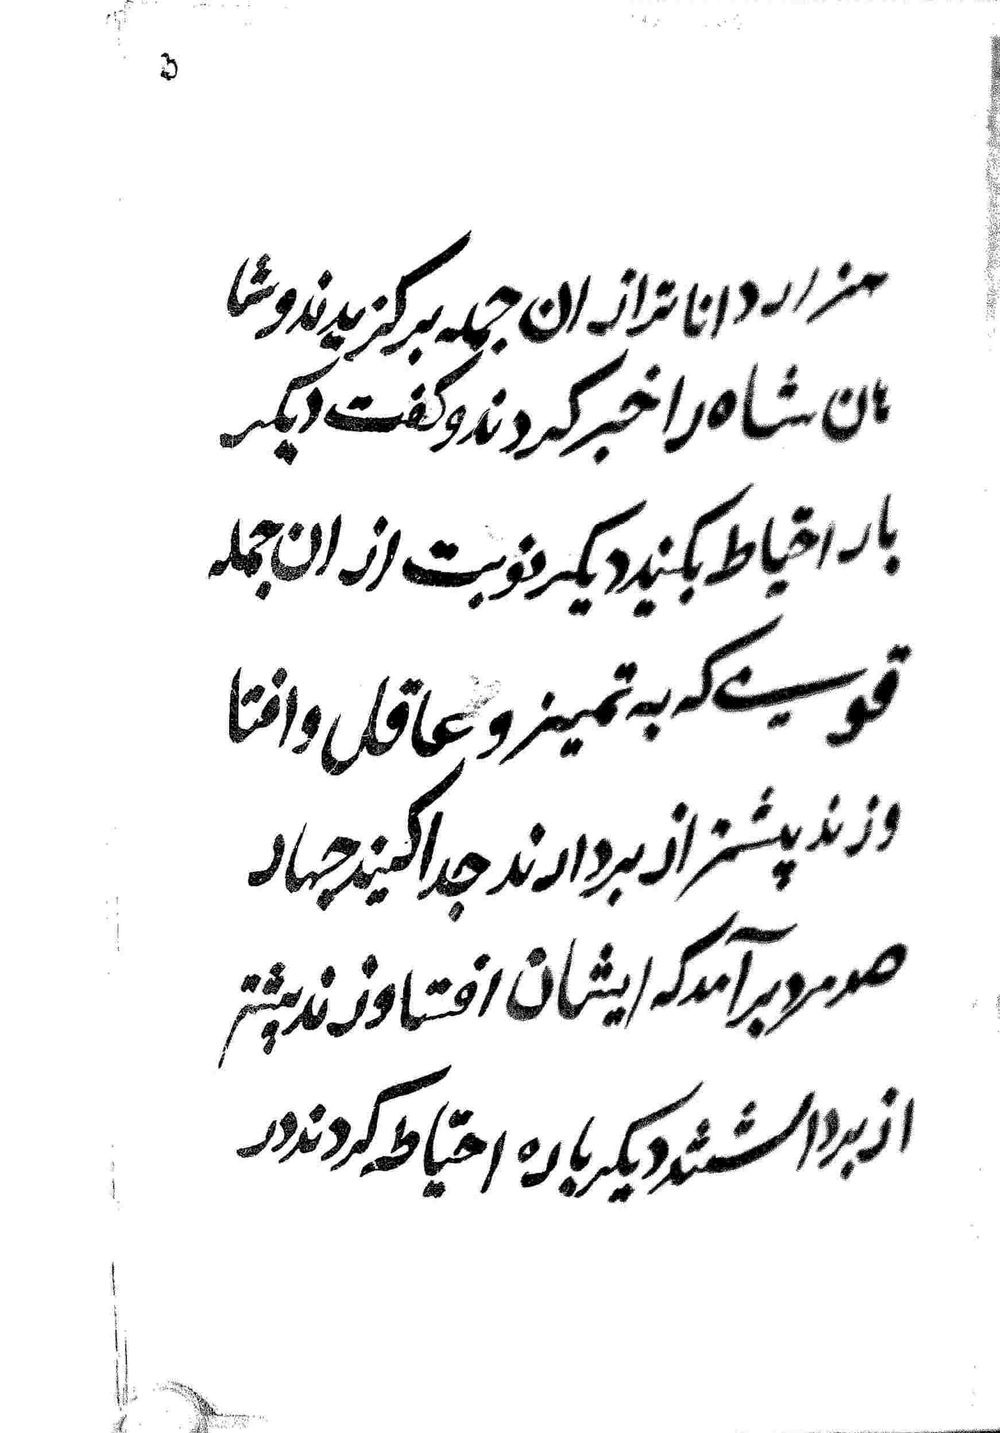 هزار دانا تر از ان جمله برکزیدند و شا
هان شاه را خبر کردند و کفت دیکر
بار احتیاط بکنید دیکر نوبت از ان جمله
قومی که به تمیز و عاقل و افتا
وزند پشتر از بر دارند جدا کنید چهار
صد مرد بر آمد که ایشان افستا وزند پشتر
از بر داشتند دیکر باره احتیاط کردند در